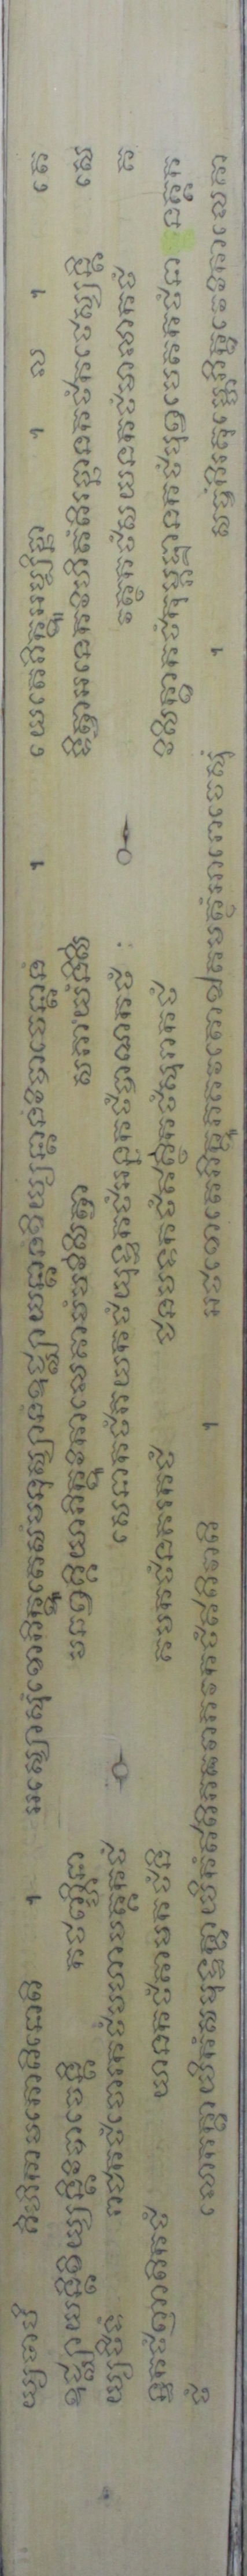 យ្យថាបិ គិហីកាមភោគិនោតិ ។ អស្សោសុំខោភិក្ខូតេសំមនុស្សានំឧជ្ឈាយន្តានំខិយ្យន្តានំវិបាចេន្តានំ ។ យេតេភិក្ខូអប្បិច្ឆា ។ ល ។ តេ
ឧជ្ឈាយន្តិខិយ្យន្តិវិបាចេន្តិ កថញ្ហិនាមឆព្វគ្គិយាភិក្ខូវិកាលេគាមំបវិសិត្វា សភាយំនិសីទិត្វាអនេកវិហិតំតិរច្ឆានកថំកថេស្សន្តិ សេ
យ្យថិទំ រាជកថំចោរកថំមហាមត្តកថំ សេនាកថំភយកថំយុទ្ធកថំអន្នកថំបាណកថំ វត្ថកថំសយនកថំមាលាកថំ គ
ន្ធកថំញាតិកថំ យានកថំគាមកថំនិគមកថំនគរកថំ ជនបទកថំឥត្ថិកថំសុរាកថំ វិសិក្ខាកថំកុម្ភដ្ឋានកថំបុព្វបេតកថំនានត្តក
ថំ លោកក្ខាយិកំសមុទ្ទក្ខាយិកំឥតិភវាភវកថំឥតិវាតិ ។ អថខោតេភិក្ខូភគវតោឯតមត្ថំអារោចេសុំ ។ សច្ចំកិរតុម្ហេភិក្ខវេវិកាលេគា